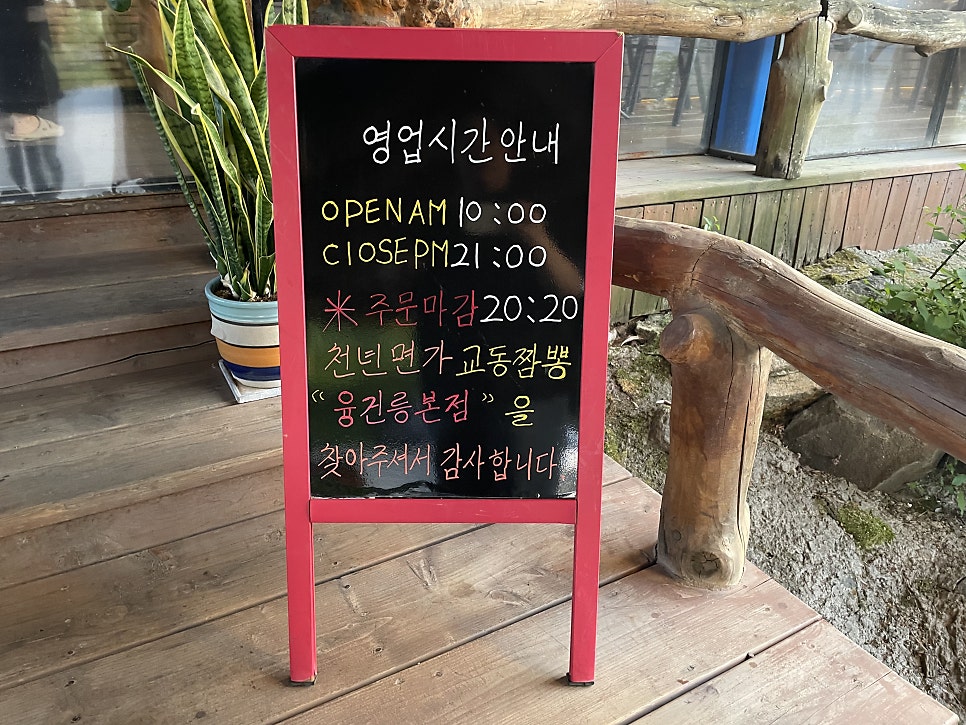 영업시간안내
OPEN AM 10:00
ClOSE PM 21:00
※ 주문마감 20:20
천년면가 교동짬뽕
“융건릉본점” 을
찾아주셔서 감사합니다